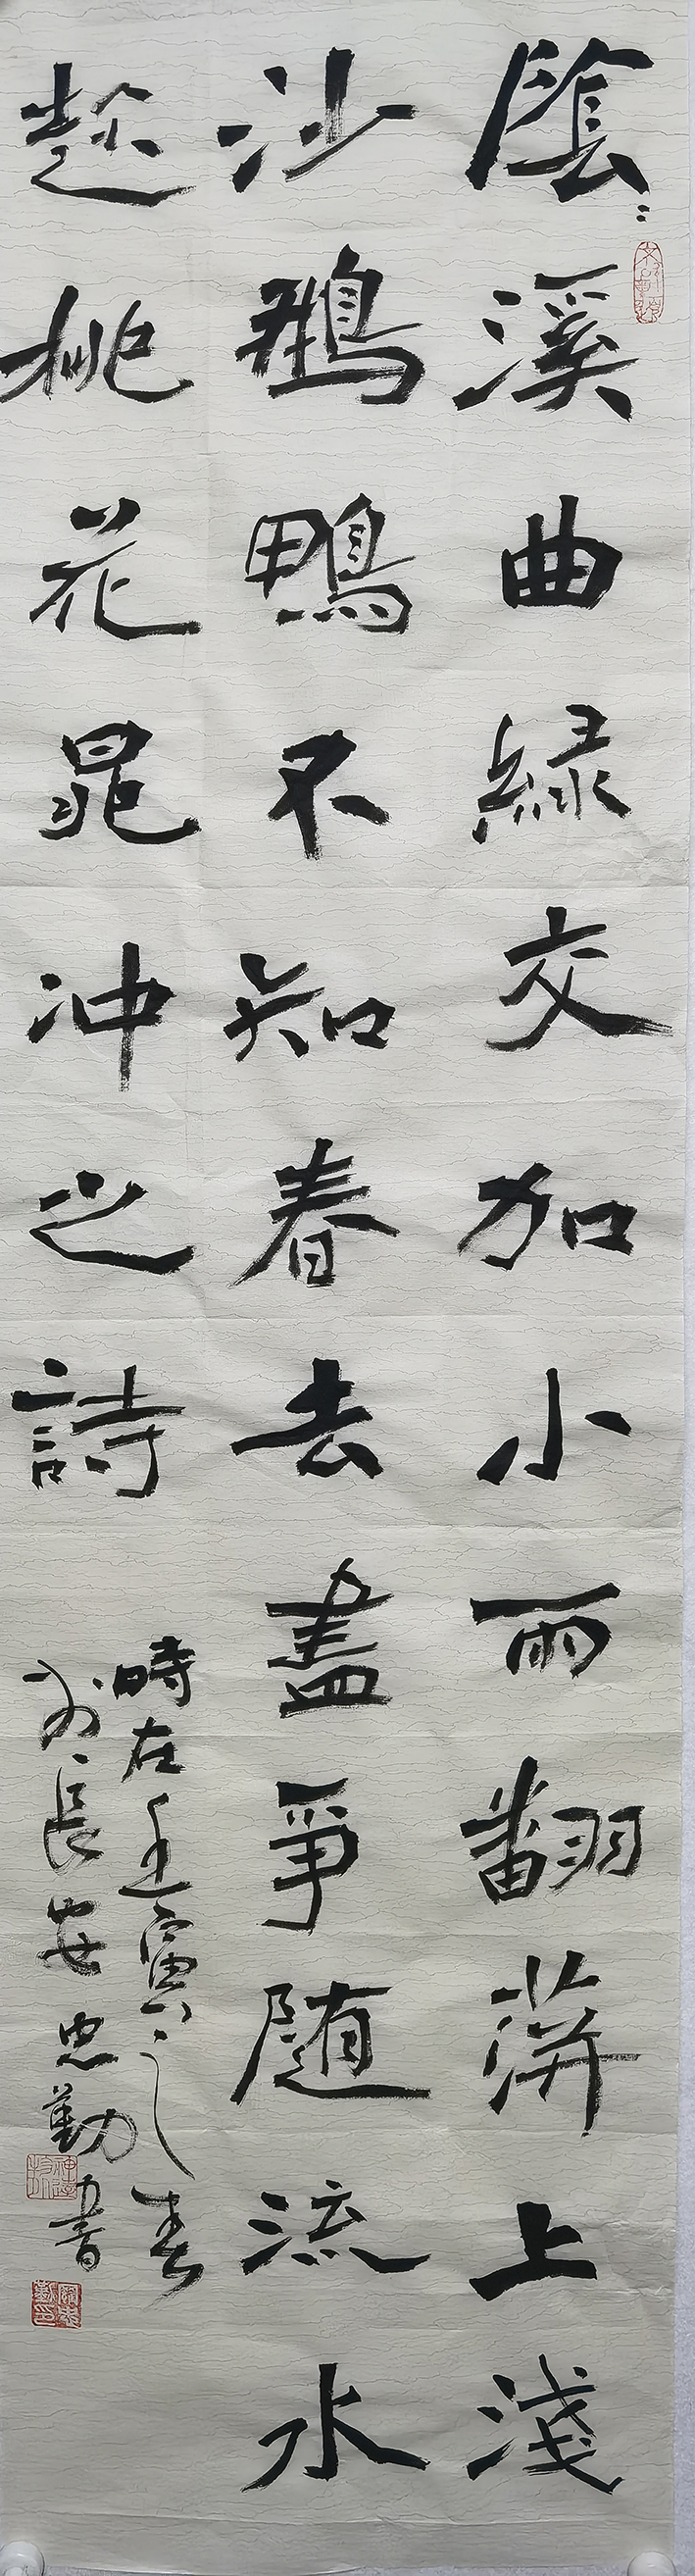 陰〻溪曲緑交加小雨翻蓱上淺
沙鵝鴨不知春去盡爭随流水
趂桃花晁冲之詩
時在壬寅之春
於長安忠勤書